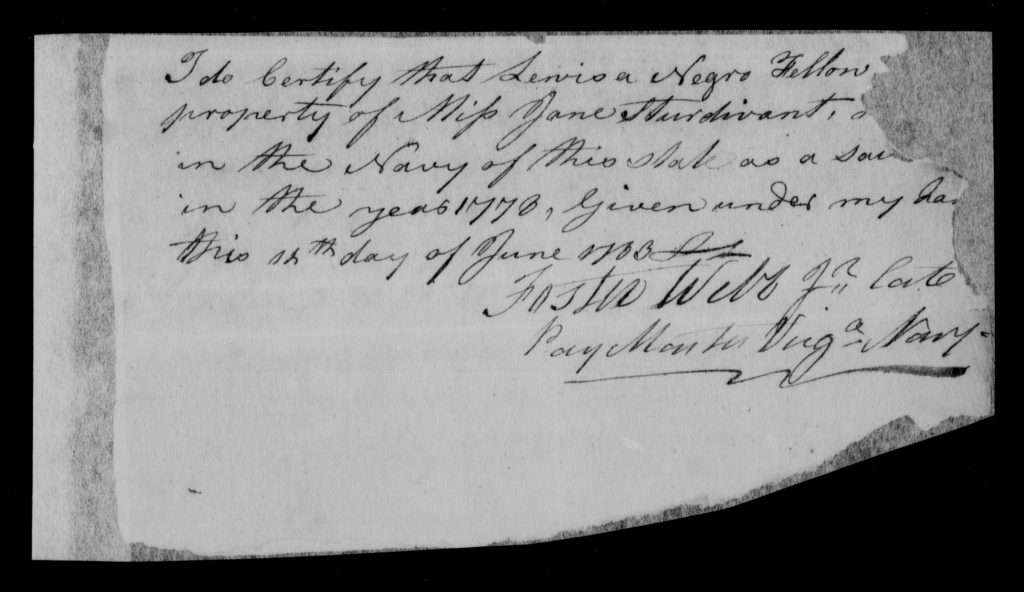 I do Certify that Lewis a Negro Fellow
property of Miss Jane Sturdivant,
in the Navy of this State as a
in the year 1778, Given under my
this 12th day of June 1783
Foster Webb Jr. late
Pay Master Virga. Navy